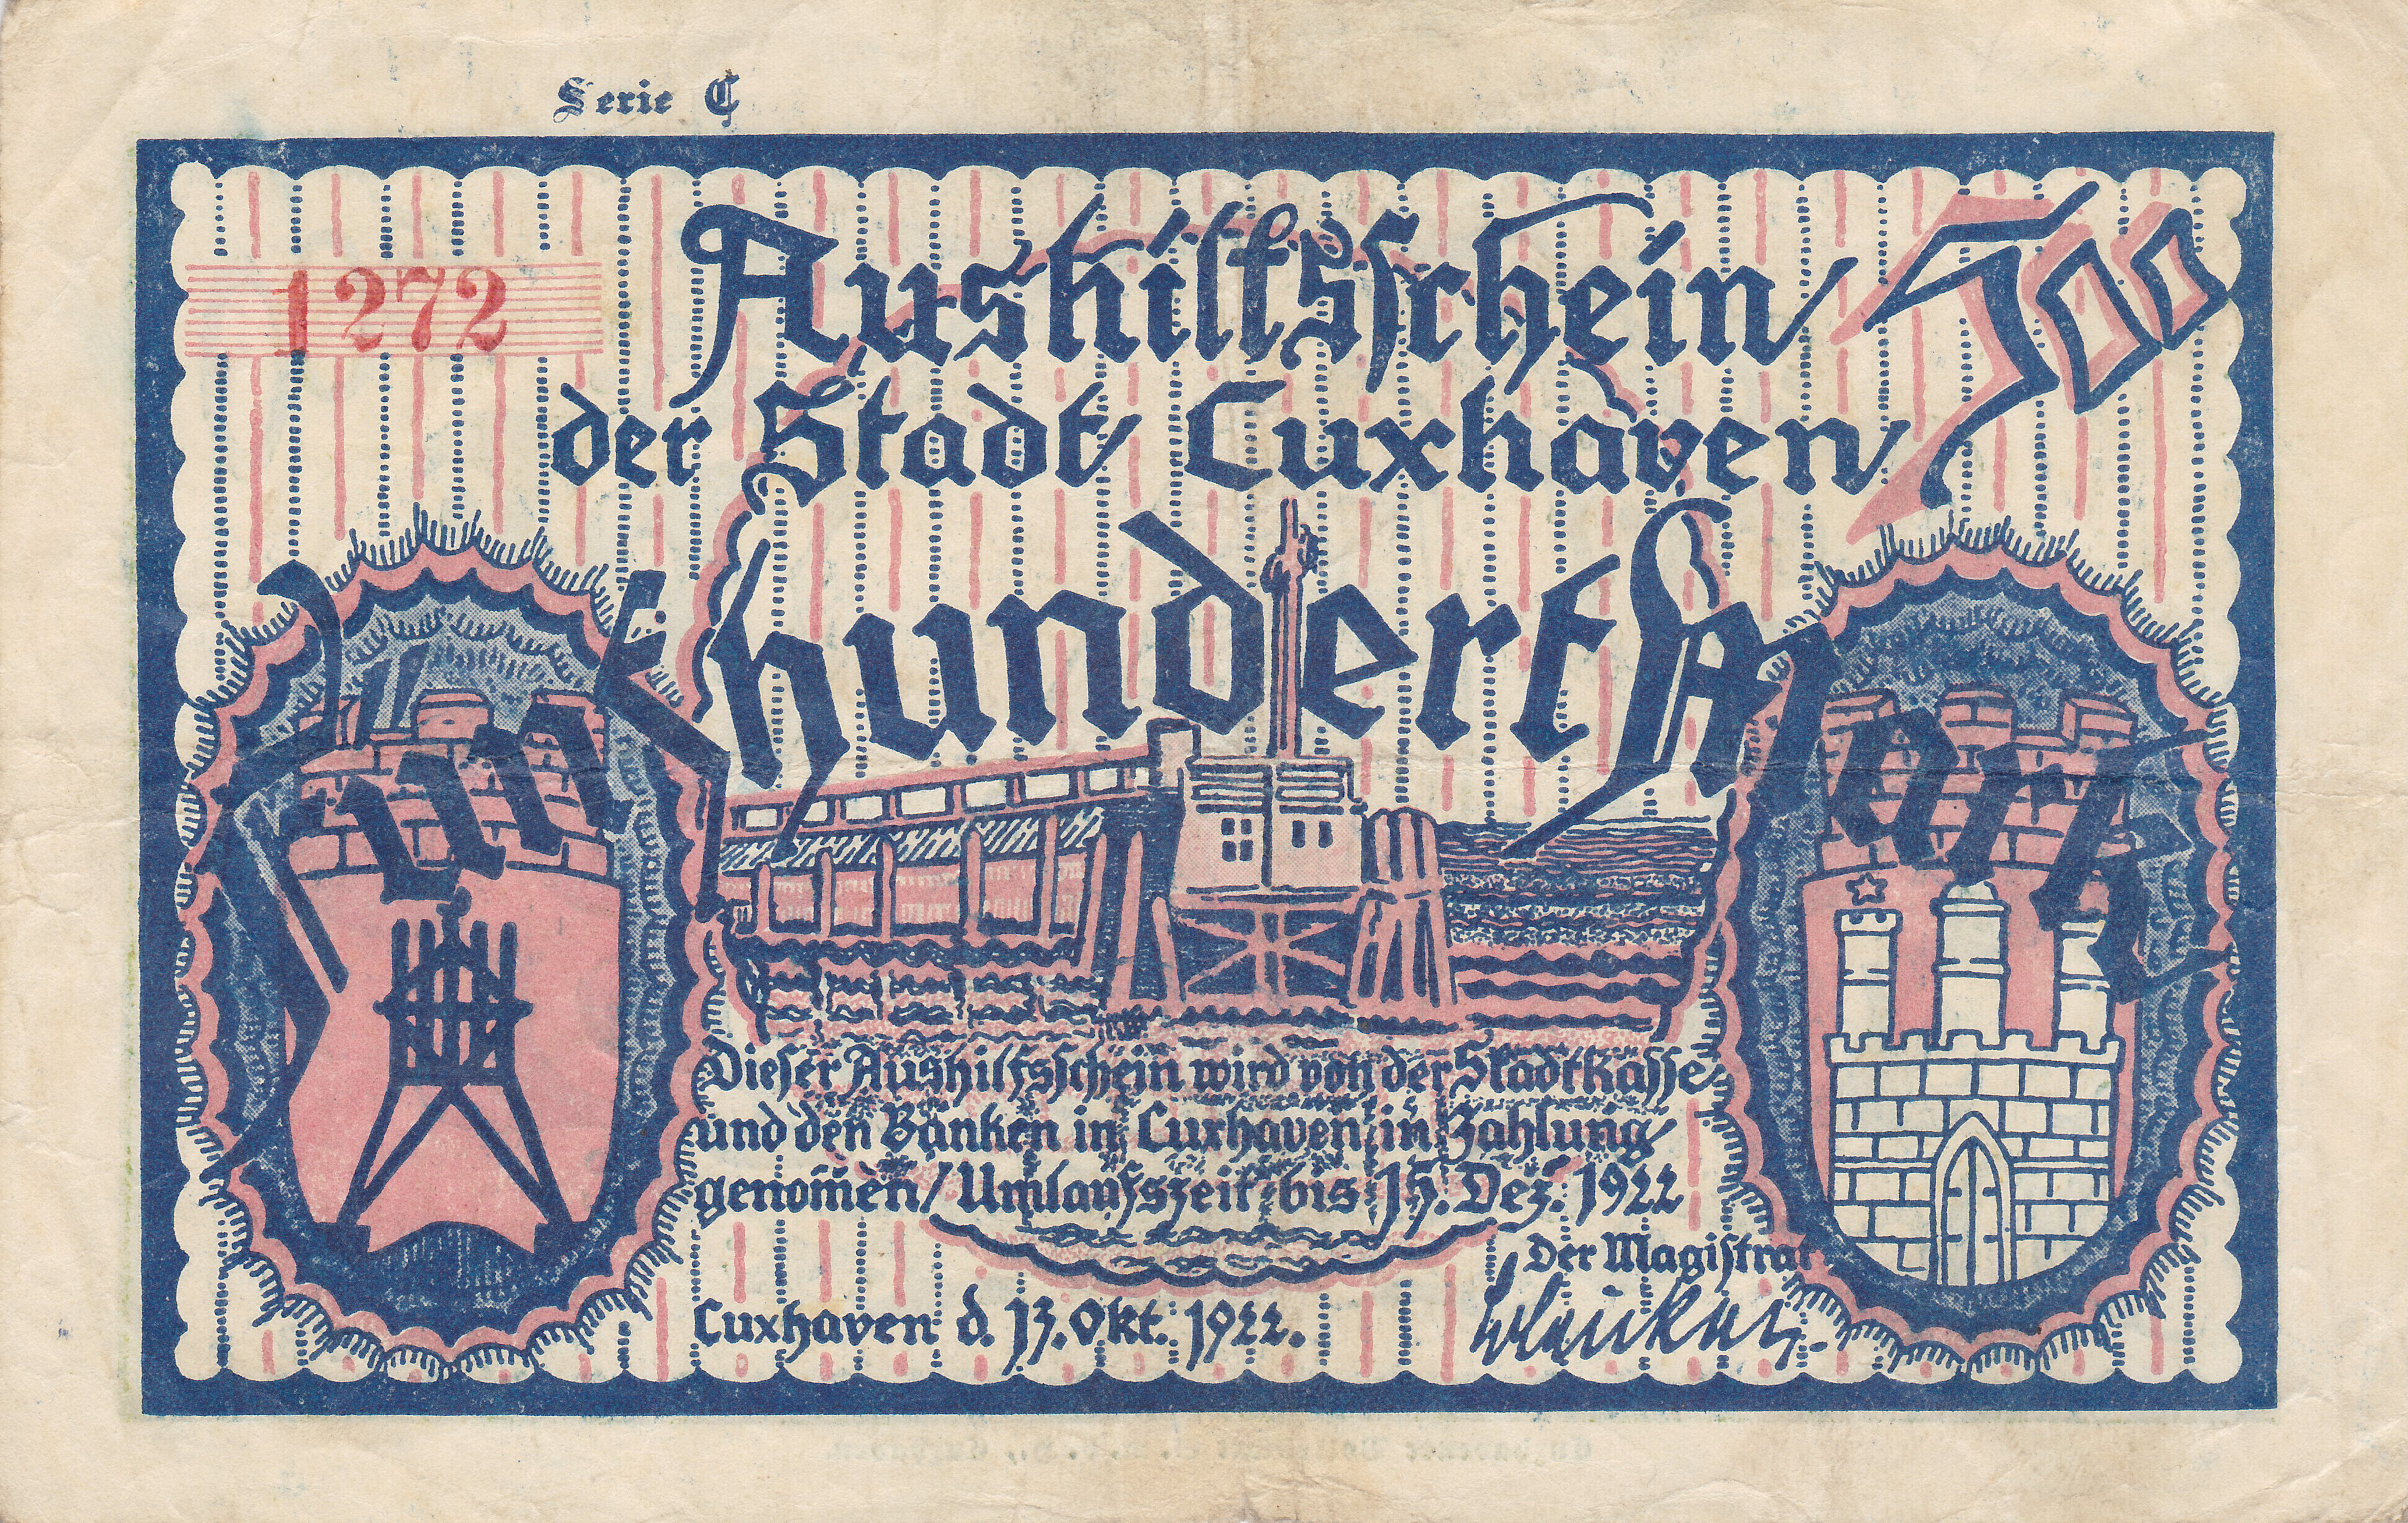 Serie C
1272
Aushilfsschein 500
der Stadt Cuxhaven
Fünfhundert Mark
Dieser Aushilfsschein wird von der Stadtkasse
und den Banken in Cuxhaven in Zahlung
genom̄en / Umlaufszeit bis 15. Dez. 1922
Der Magistrat
Cuxhaven d. 13. Okt. 1922.